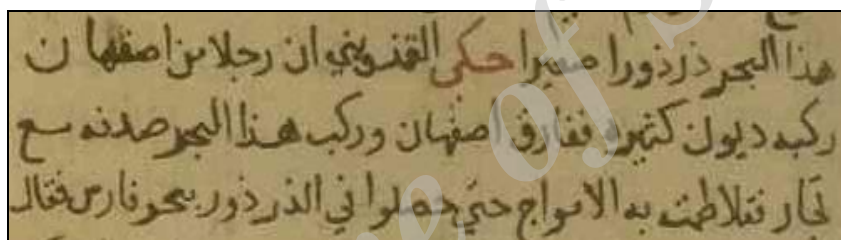 هذا البحر ذرذورا صغيرا حكى القذويني ان رجلا من اصفهان
ركبه ديون كثيرة ففارق اصفهان وركب هذا البحر صدفه مع
تجار فتلاطمت به الامواج حتى حصلوا في الذرذور ببحر فارس فقال